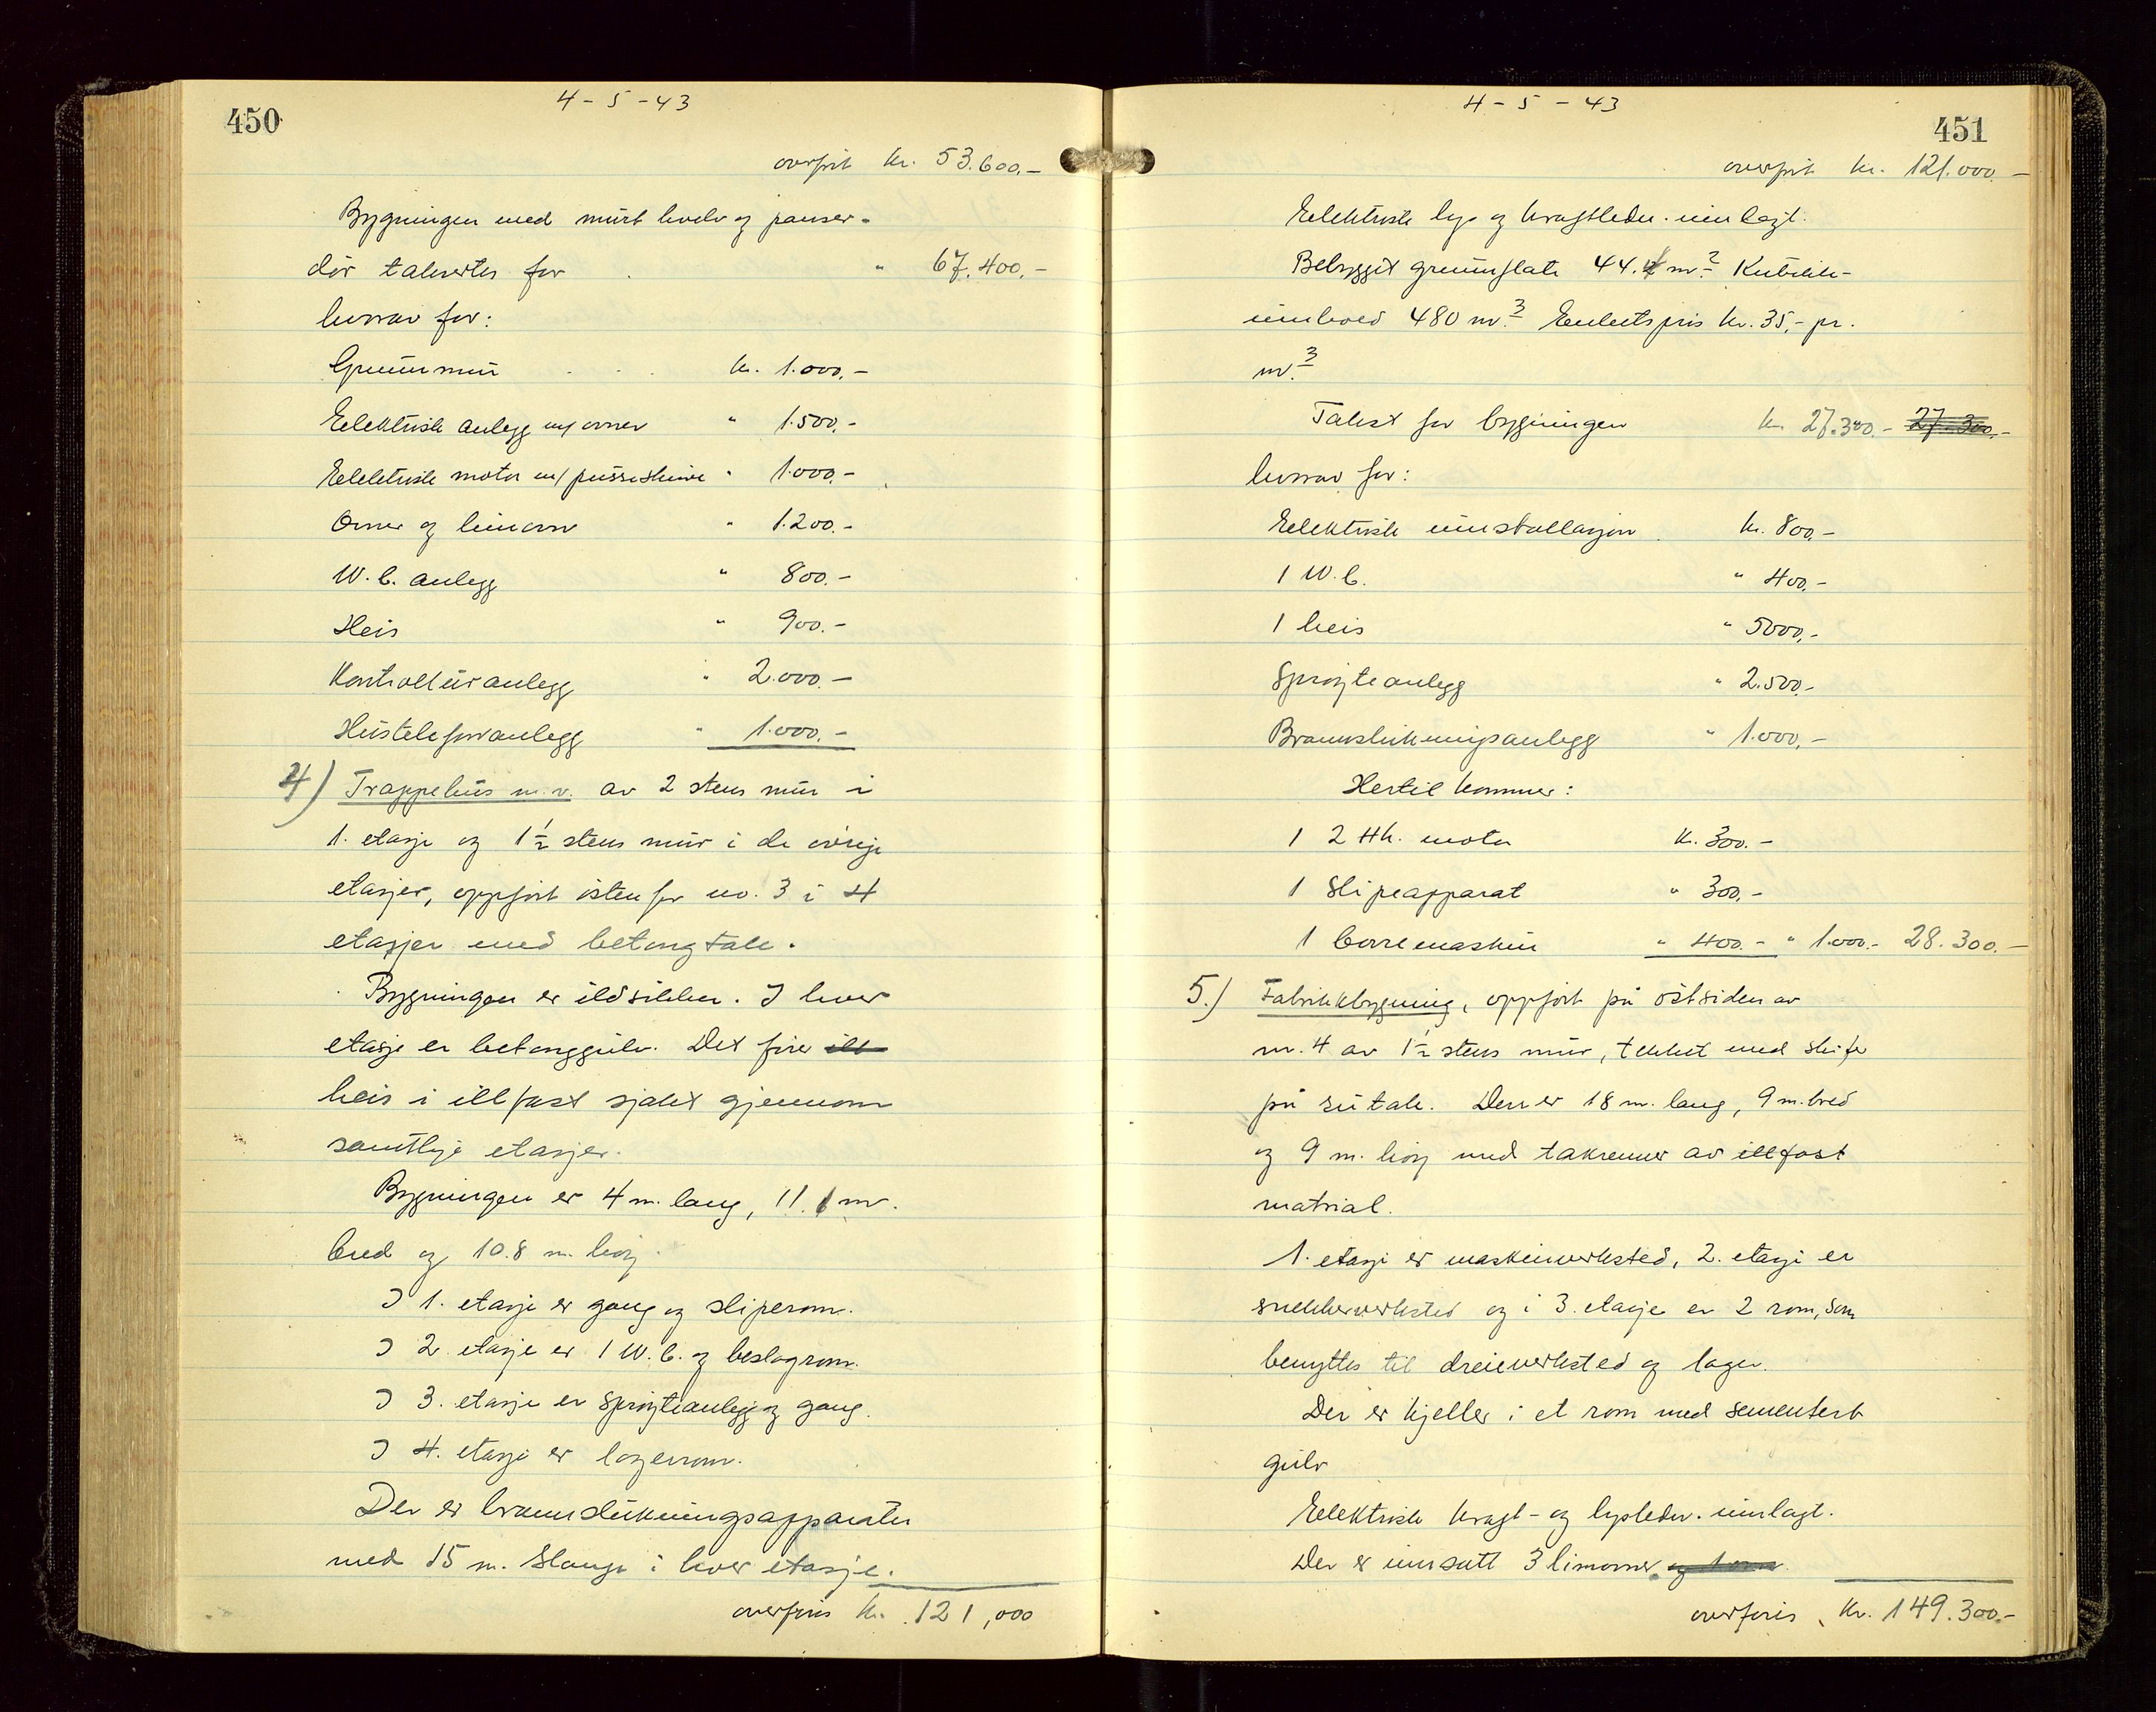 450
4-5-43
overført kr. 53.600.-
Bygningen med murt hvelv og panser-
dør taksertes for " 67.400,-
hvorav for:
Grunnmur kr. 1.000,-
Elektrisk anlegg m/ ovner " 1.500,-
Elektrisk motor m/ pusseskive " 1.000,-
Ovner og limovn " 1.200.-
W.C. anlegg " 800.-
Heis " 900.-
Kontrollur anlegg " 2.000.-
Hustelefonanlegg " 1.000.-
4) Trappehus m.v. av 2 stens mur i
1. etasje og 1½ stens mur i de øvrige
etasjer, oppført østenfor no. 3 i 4
etasjer med betongtak.
Bygningen er ildsikker. I hver
etasje er betonggulv. Det fører ill
heis i illfast sjakt gjennom
samtlige etasjer.
Bygningen er 4 m. lang, 11.1 m.
bred og 10.8 m. høy.
I 1. etasje er gang og sliperom.
I 2. etasje er 1 W.C. og beslagrom.
I 3. etasje er sprøyteanlegg og gang.
I 4. etasje er lagerrom.
Der er brannslukningsapparater
med 15 m. slange i hver etasje.
overføres kr. 121,000
4-5-43
451
overført kr. 121.000.-
Elektrisk lys og kraftledn. innlagt.
Bebygget grunnflate 44.4 m.² Kubikk-
innhold 480 m.³ Enhetspris kr. 35,- pr.
m.³
Takst for bygningen kr. 27.300.- 27.300,-
hvorav for:
Elektrisk innstallasjon kr. 800,-
1 W.C. " 400,-
1 heis " 5000,-
Sprøyteanlegg " 2.500.-
Brannslukningsanlegg " 1.000,-
Hertil kommer:
1 2 Hk. motor kr. 300.-
1 Slipeapparat " 300,-
1 borremaskin " 400.- " 1.000.- 28.300.-
5.) Fabrikkbygning, oppført på østsiden av
nr. 4 av 1½ stens mur, tekket med skifer
på sutak. Den er 18 m. lang, 9 m. bred
og 9 m. høy med takrenner av illfast
matrial.
1. etasje er maskinverksted, 2. etasje er
snekkerverksted og i 3. etasje er 2 rom, som
benyttes til dreieverksted og lager.
Der er kjeller i et rom med sementert
gulv
Elektrisk kraft- og lysledn. innlagt.
Der er innsatt 3 limovner. og 1 ovn.
overføres kr. 149.300.-